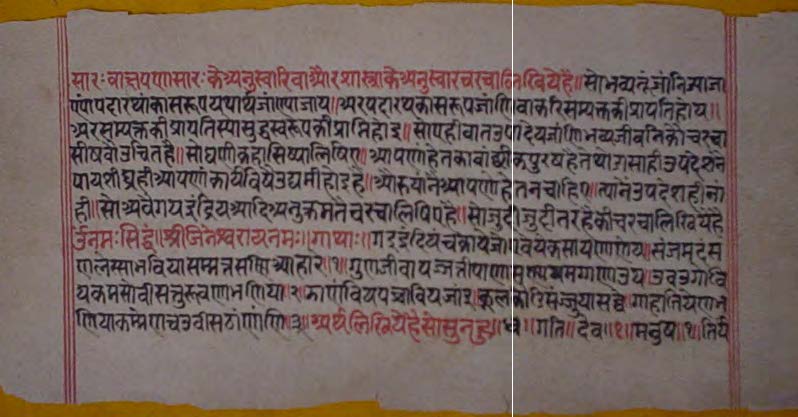 सारः वा क्षपणासारः के अनुस्वारि वा और शास्त्रा के अनुस्वार चरचा लिखियेहै॥ सो भव्य
पदारथांका सरूप यथार्थ जांण्या जाय॥ अर पदारथका सरूप जांणि वा करि सम्यक्तकी प्रापति होय॥
अर सम्यक्तकी प्रापति स्यों सुद्ध स्वरूपकी प्राप्ति होइ॥ सो एही वात उपादेय जांणि भव्य जीवनिको चरचा
सीषवो उचित है॥ सो घणी कहा सिध्या लिषिए॥ आपणे हेतका वांछीक पुरष है ते थो उपदेशने
पाय शीघ्रही आपणां कार्य विषे उद्यमी होइ है॥ उपदेशही नां
ही॥ सो अनुक्रमतै चरचा लिषिए है॥ सो जुदी जुदी तरहैकी चरचा लिखिये है
र्उनमः सिद्धं॥ श्री जिनेश्वरायनमः॥ गाथाः॥ गइ इंदियं च काये जोए वेय कसाय णांणेय॥ संजम दंस
ण लेस्सा भविया सम्मत्त सण्णि आहारे॥१॥ गुण जीवा पज्जत्ती पाणा सण्णा मग्गणाउय॥ उवउगो वि
य कमसो वीसं तु परूवणा भणिया॥२॥ झाणं विय पच्चा विय जांइ कूल कोडि संजुया सव्वे॥ गाहा तिय
णिया कम्मेण चउवीस ठांणांणि॥३॥ अर्थ लिखियेहै सो सुनहु॥ गति॥ देव॥१॥ मनुष॥ तिर्य